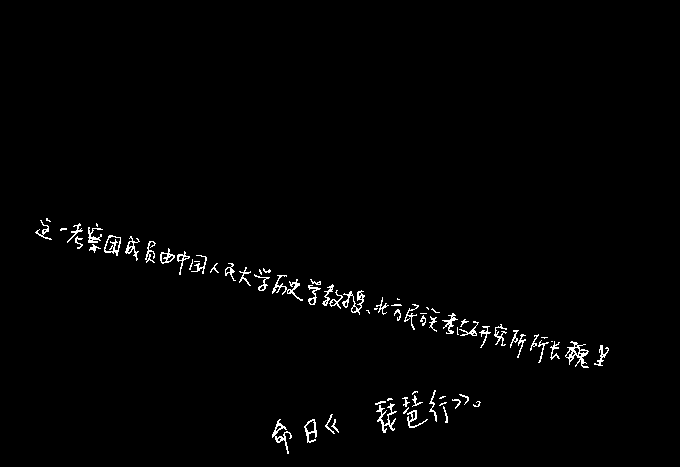 这一考察团成员由中国人民大学历史学教授、北方民族考古研究所所长魏坚
命曰《琵琶行》。